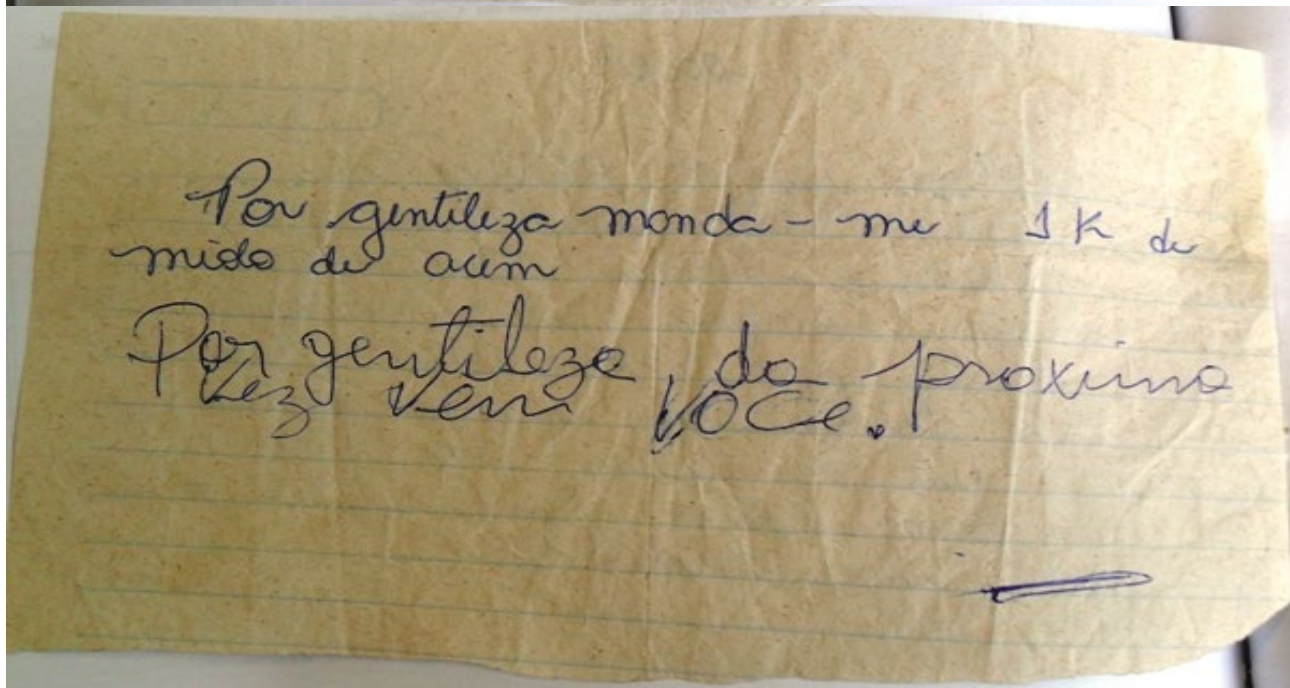 Por gentileza manda-me 1K de
miolo de acem
Por gentileza, da proxima
vez vem voce.